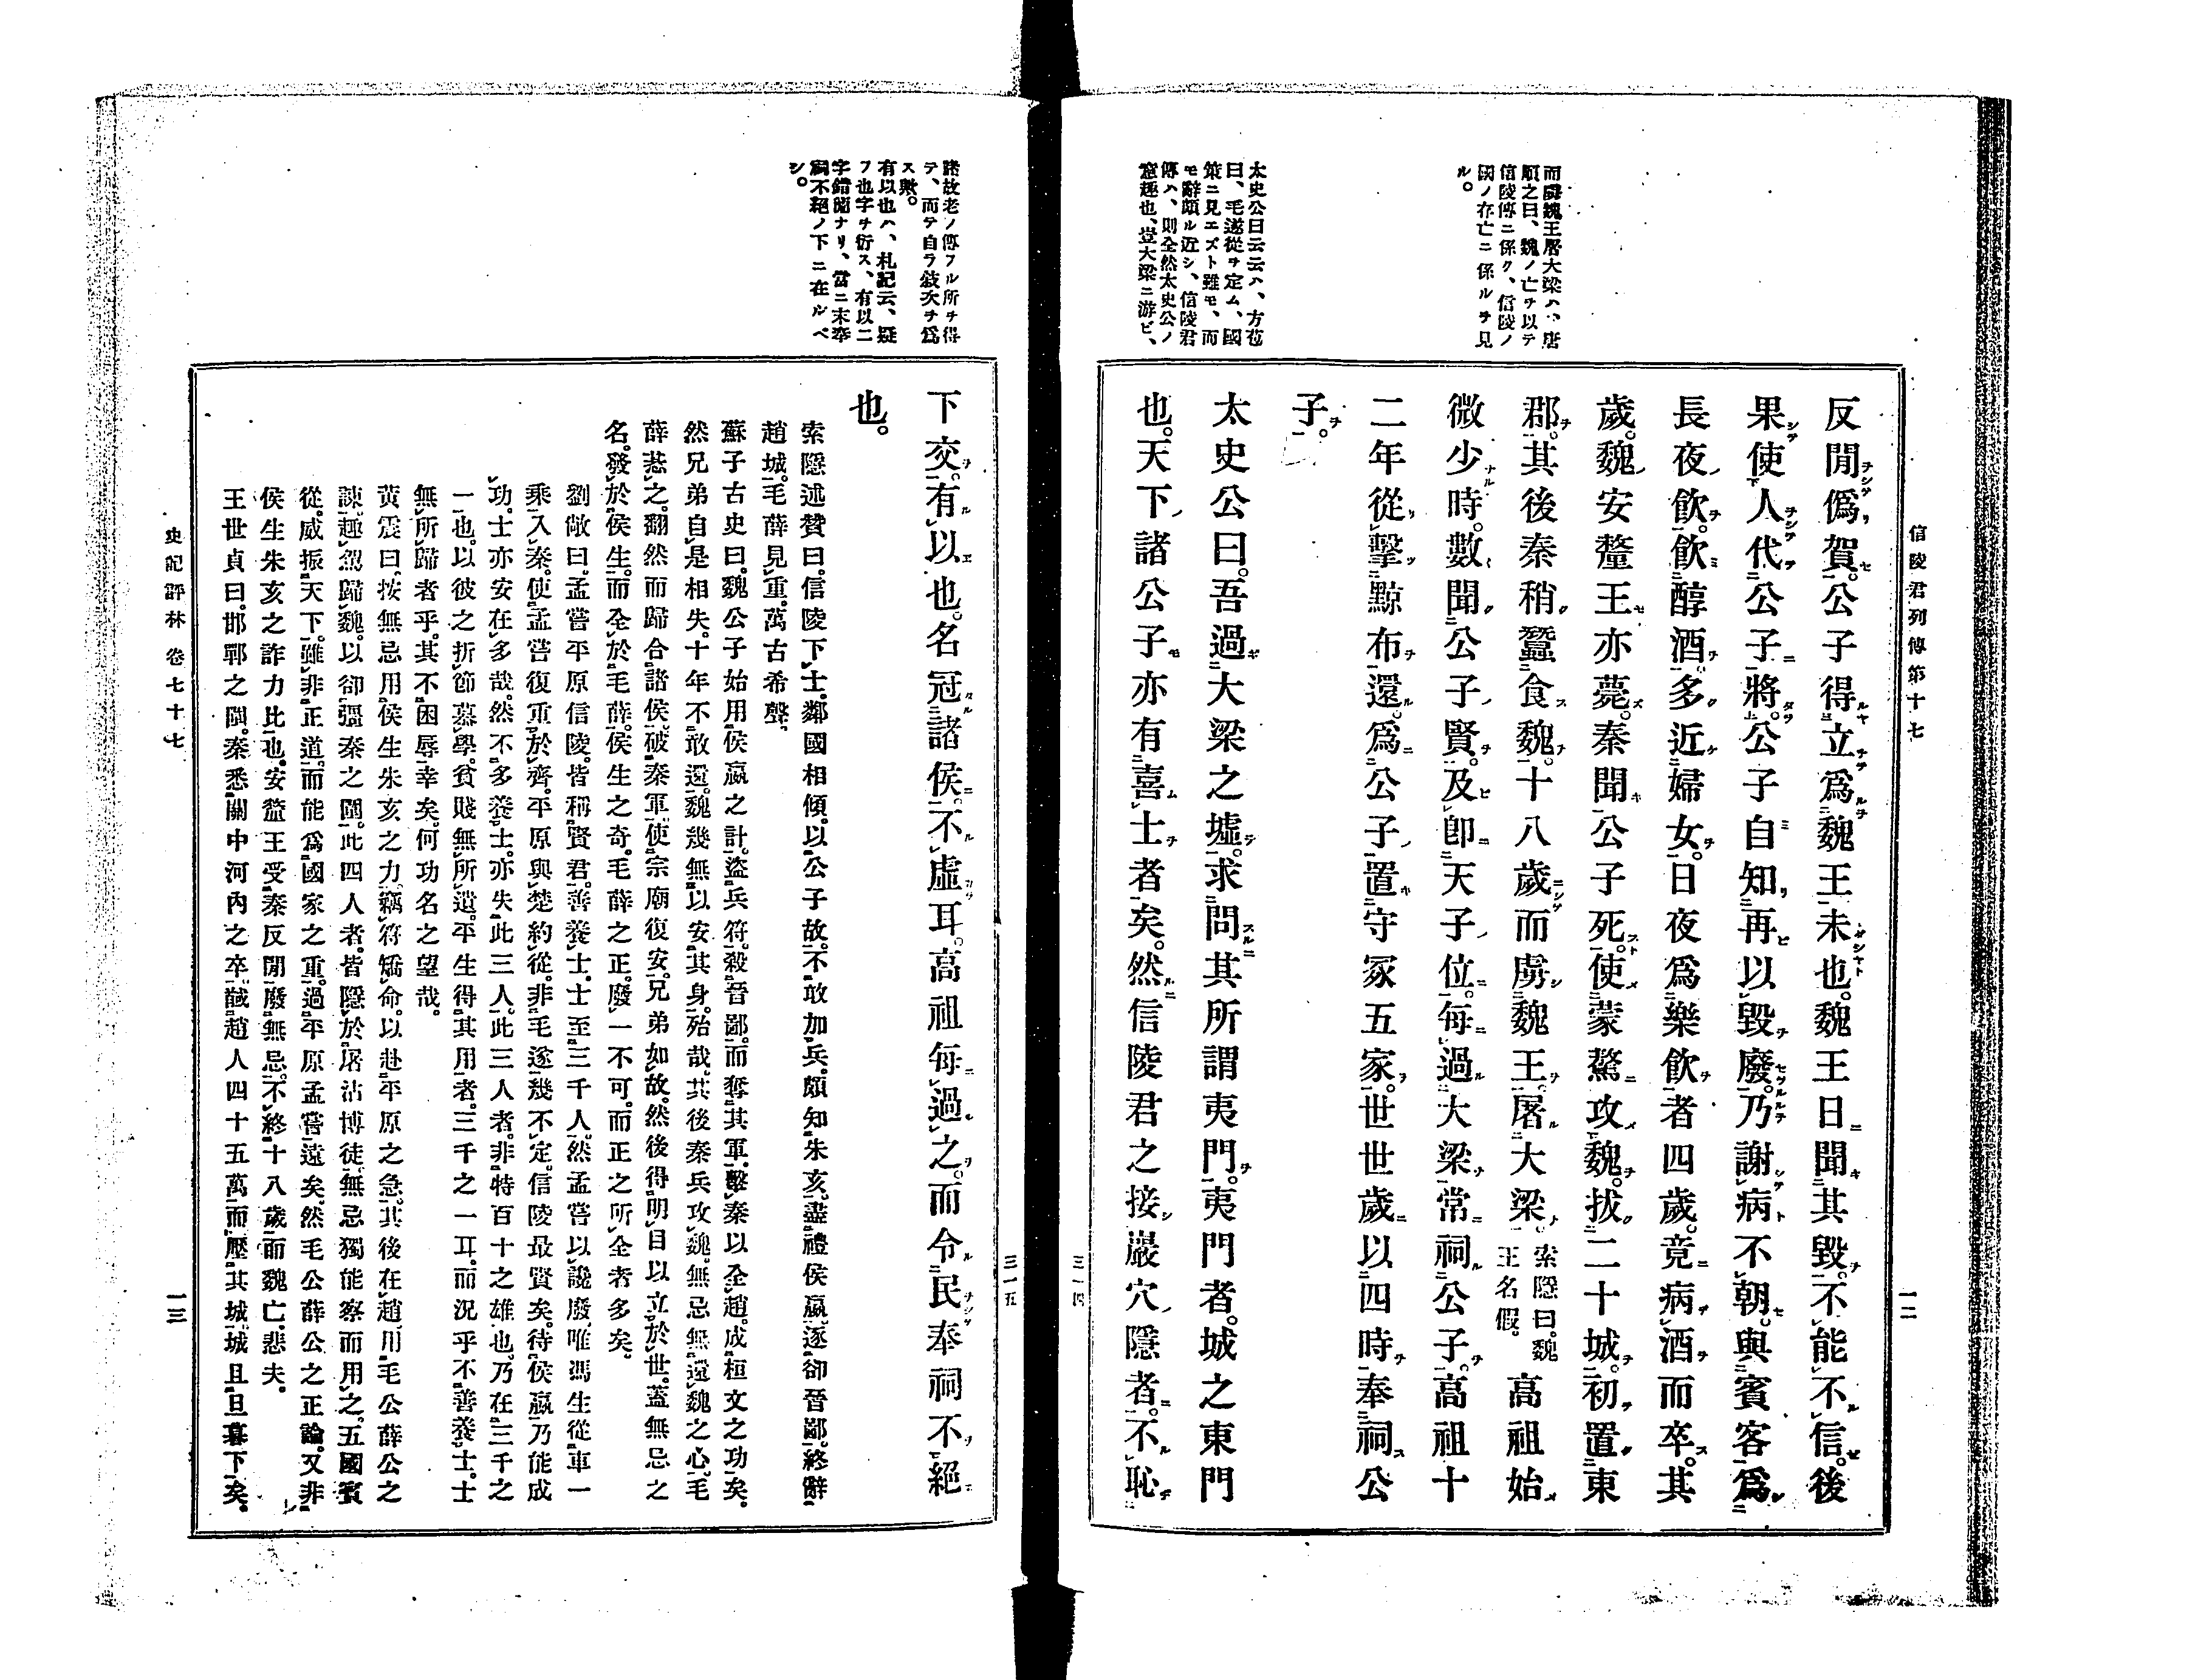 信陵君列傳第十七
一二
三一四
而虜魏王屠大梁ハ、唐
順之曰、魏ノ亡ヲ以テ
信陵傳ニ係ク、信陵ノ
國ノ存亡ニ係ルヲ見
ル。
太史公曰云云ハ、方苞
曰、毛遂從ヲ定ム、國
策ニ見エズト雖モ、而
モ辭頗ル近シ、信陵君
傳ハ、則全然太史公ノ
意趣也、豈大梁ニ游ビ、
反閒僞賀。公子得立爲魏王未也。魏王日聞其毀。不能不信。後
果使人代公子將。公子自知再以毀廢。乃謝病不朝。與賓客爲
長夜飮。飮醇酒。多近婦女。日夜爲樂飮者四歲。竟病酒而卒。其
歲。魏安釐王亦薨。秦聞公子死。使蒙驁攻魏。拔二十城。初置東
郡。其後秦稍蠶食魏。十八歲而虜魏王。屠大梁。索隱曰。魏王名假。高祖始
微少時。數聞公子賢。及卽天子位。每過大梁。常祠公子。高祖十
二年從擊黥布還。爲公子置守冢五家。世世歲以四時奉祠公
子。
太史公曰。吾過大梁之墟。求問其所謂夷門。夷門者。城之東門
也。天下諸公子亦有喜士者矣。然信陵君之接巖穴隱者。不恥
諸故老ノ傳フル所ヲ得
テ、而テ自ラ敍次ヲ爲
ス歟。
有以也ハ、札記云、疑
フ也字ヲ衍ス、有以二
字錯簡ナリ、當ニ末奉
祠不絕ノ下ニ在ルベ
シ。
下交。有以也。名冠諸侯。不虛耳。高祖每過之。而令民奉祠不絕
也。
索隱述贊曰。信陵下士。鄰國相傾。以公子故。不敢加兵。頗知朱亥。盡禮侯嬴。遂卻晉鄙。終辭
趙城。毛薛見重。萬古希聲。
蘇子古史曰。魏公子始用侯嬴之計。盜兵符。殺晉鄙。而奪其軍。擊秦以全趙。成桓文之功矣。
然兄弟自是相失。十年不敢還。魏幾無以安其身。殆哉。其後秦兵攻魏。無忌無還魏之心。毛
薛惎之。翻然而歸。合諸侯。破秦軍。使宗廟復安。兄弟如故。然後得明目以立於世。蓋無忌之
名。發於侯生。而全於毛薛。侯生之奇。毛薛之正。廢一不可。而正之所全者多矣。
劉敞曰。孟嘗平原信陵。皆稱賢君。善養士。士至三千人。然孟嘗以讒廢。唯馮生從車一
乘入秦。使孟嘗復重於齊。平原與楚約從。非毛遂幾不定。信陵最賢矣。待侯嬴乃能成
功。士亦安在多哉。然不多養士。亦失此三人。此三人者。非特百十之雄也。乃在三千之
一也。以彼之折節慕學。貧賤無所遺。平生得其用者。三千之一耳。而況乎不善養士。士
無所歸者乎。其不困辱幸矣。何功名之望哉。
黃震曰。按無忌用侯生朱亥之力。竊符矯命。以赴平原之急。其後在趙用毛公薛公之
諫。趣駕歸魏。以卻彊秦之圍。此四人者。皆隱於屠沽博徒。無忌獨能察而用之。五國賓
從。威振天下。雖非正道。而能爲國家之重。過平原孟嘗遠矣。然毛公薛公之正論。又非
侯生朱亥之詐力比也。安釐王受秦反閒。廢無忌。不終十八歲而魏亡。悲夫。
王世貞曰。邯鄲之圍。秦悉關中河內之卒。馘趙人四十五萬。而壓其城。城且旦暮下矣。
史記評林 卷七十七
一三
三一五